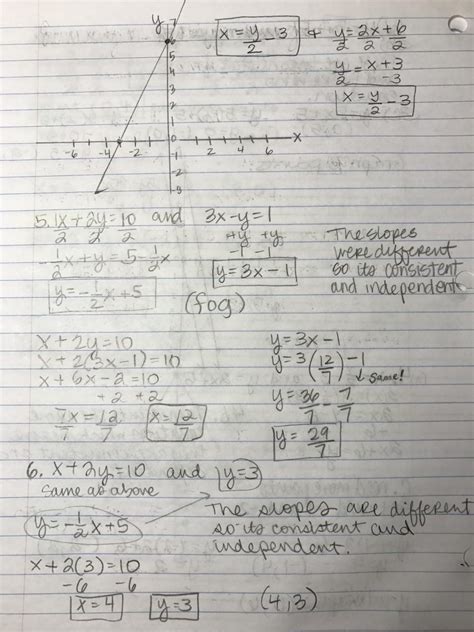 y
7
6
5
4
3
2
1
0
-6 -4 -2 2 4 6 x
-1
-2
x = y/2 - 3 & y/2 = 2x/2 + 6/2
y/2 = x + 3
-3
x = y/2 - 3
5. 1x/2 + 2y/2 = 10/2 and 3x-y=1
+y +y
-1 -1
-1/2x + y = 5 - 1/2x
y = 3x - 1
y = -1/2x + 5
(fog)
The slopes
were different
so its consistent
and independent.
x + 2y = 10
x + 2(3x-1) = 10
x + 6x - 2 = 10
+ 2 + 2
7x/7 = 12/7
x = 12/7
y = 3x - 1
y = 3(12/7) - 1
↓ same!
y = 36/7 - 7/7
y = 29/7
6. x + 2y = 10 and y = 3
same as above
y = -1/2x + 5
The slopes are different
so its consistent and
independent.
x + 2(3) = 10
-6 -6
x = 4 y = 3 (4,3)